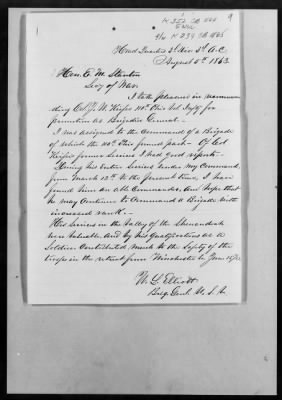 Head Quarters 3d Div. 3d A.C.
August 5th 1863.
Hon. E. M. Stanton
Secy of War.
I take pleasure in recommen
ding Col. J. W. Keifer 110th Ohio Vol. Infty for
promotion as Brigadier General.-
I was assigned to the command of a Brigade
of which the 110th Ohio formed part- Of Col
Keifer's former services I had good reports-
Having his entire service under my command
from March 12th to the present time, I have
found him an able Commander, and hope that
he may continue to command a Brigade with
increased rank.-
His services in the Valley of the Shenandoah
were valuable, and by his qualifications as a
Soldier contributed much to the safety of the
troops in the retreat from Winchester in June 15/63
W. L. Elliott
Brig. Genl. U. S. A.